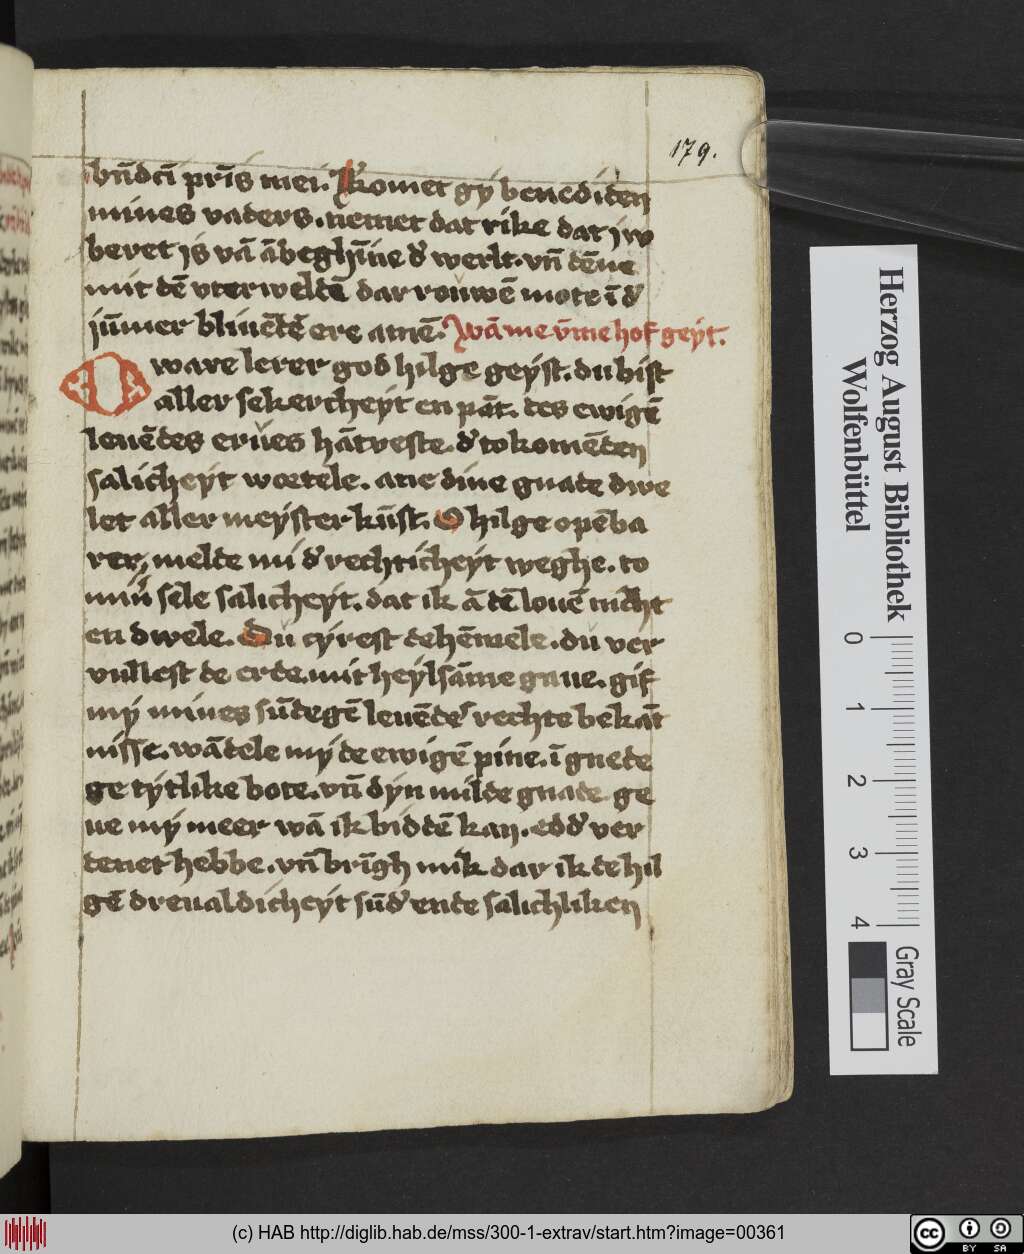 179.
bn̄dci pr̄is mei. Komet gy benediden
mines vaders. nemet dat rike dat iw
beret is vā ābeghīne d' werlt. vn̄ dēne
mit dē vterweldē dar rouwē mote ī d'
jūmer bliuēdē ere amē. Wā me v̄me hof geyt.
O ware lerer god hilge geyst. du bist
aller sekercheyt en pāt. des ewigē
leuēdes eruies hātveste. d' tokomēden
salicheyt wortele. ane dine gnade dwe
let aller meyster kūst. O hilge opēba
rer, melde mi d' rechticheyt weghe. to
min' sele salicheyt. dat ik ā dē louē nicht
en dwele. Du cyrest de hēmele. du ver
vullest de erde. mit heylsāme gaue. gif
my mines sūdegē leuēde' rechte bekāt
nisse. wādele my de ewigē pine. ī gnede
ge tytlike bote. vn̄ dyn milde gnade ge
ue my meer wā ik biddē kan. edd' ver
denet hebbe. vn̄ brīgh mik dar ik de hil
gē dreualdicheyt sūd' ende salichliken
Herzog August Bibliothek
Wolfenbüttel
0 1 2 3 4
Gray Scale
(c) HAB http://diglib.hab.de/mss/300-1-extrav/start.htm?image=00361
cc BY SA